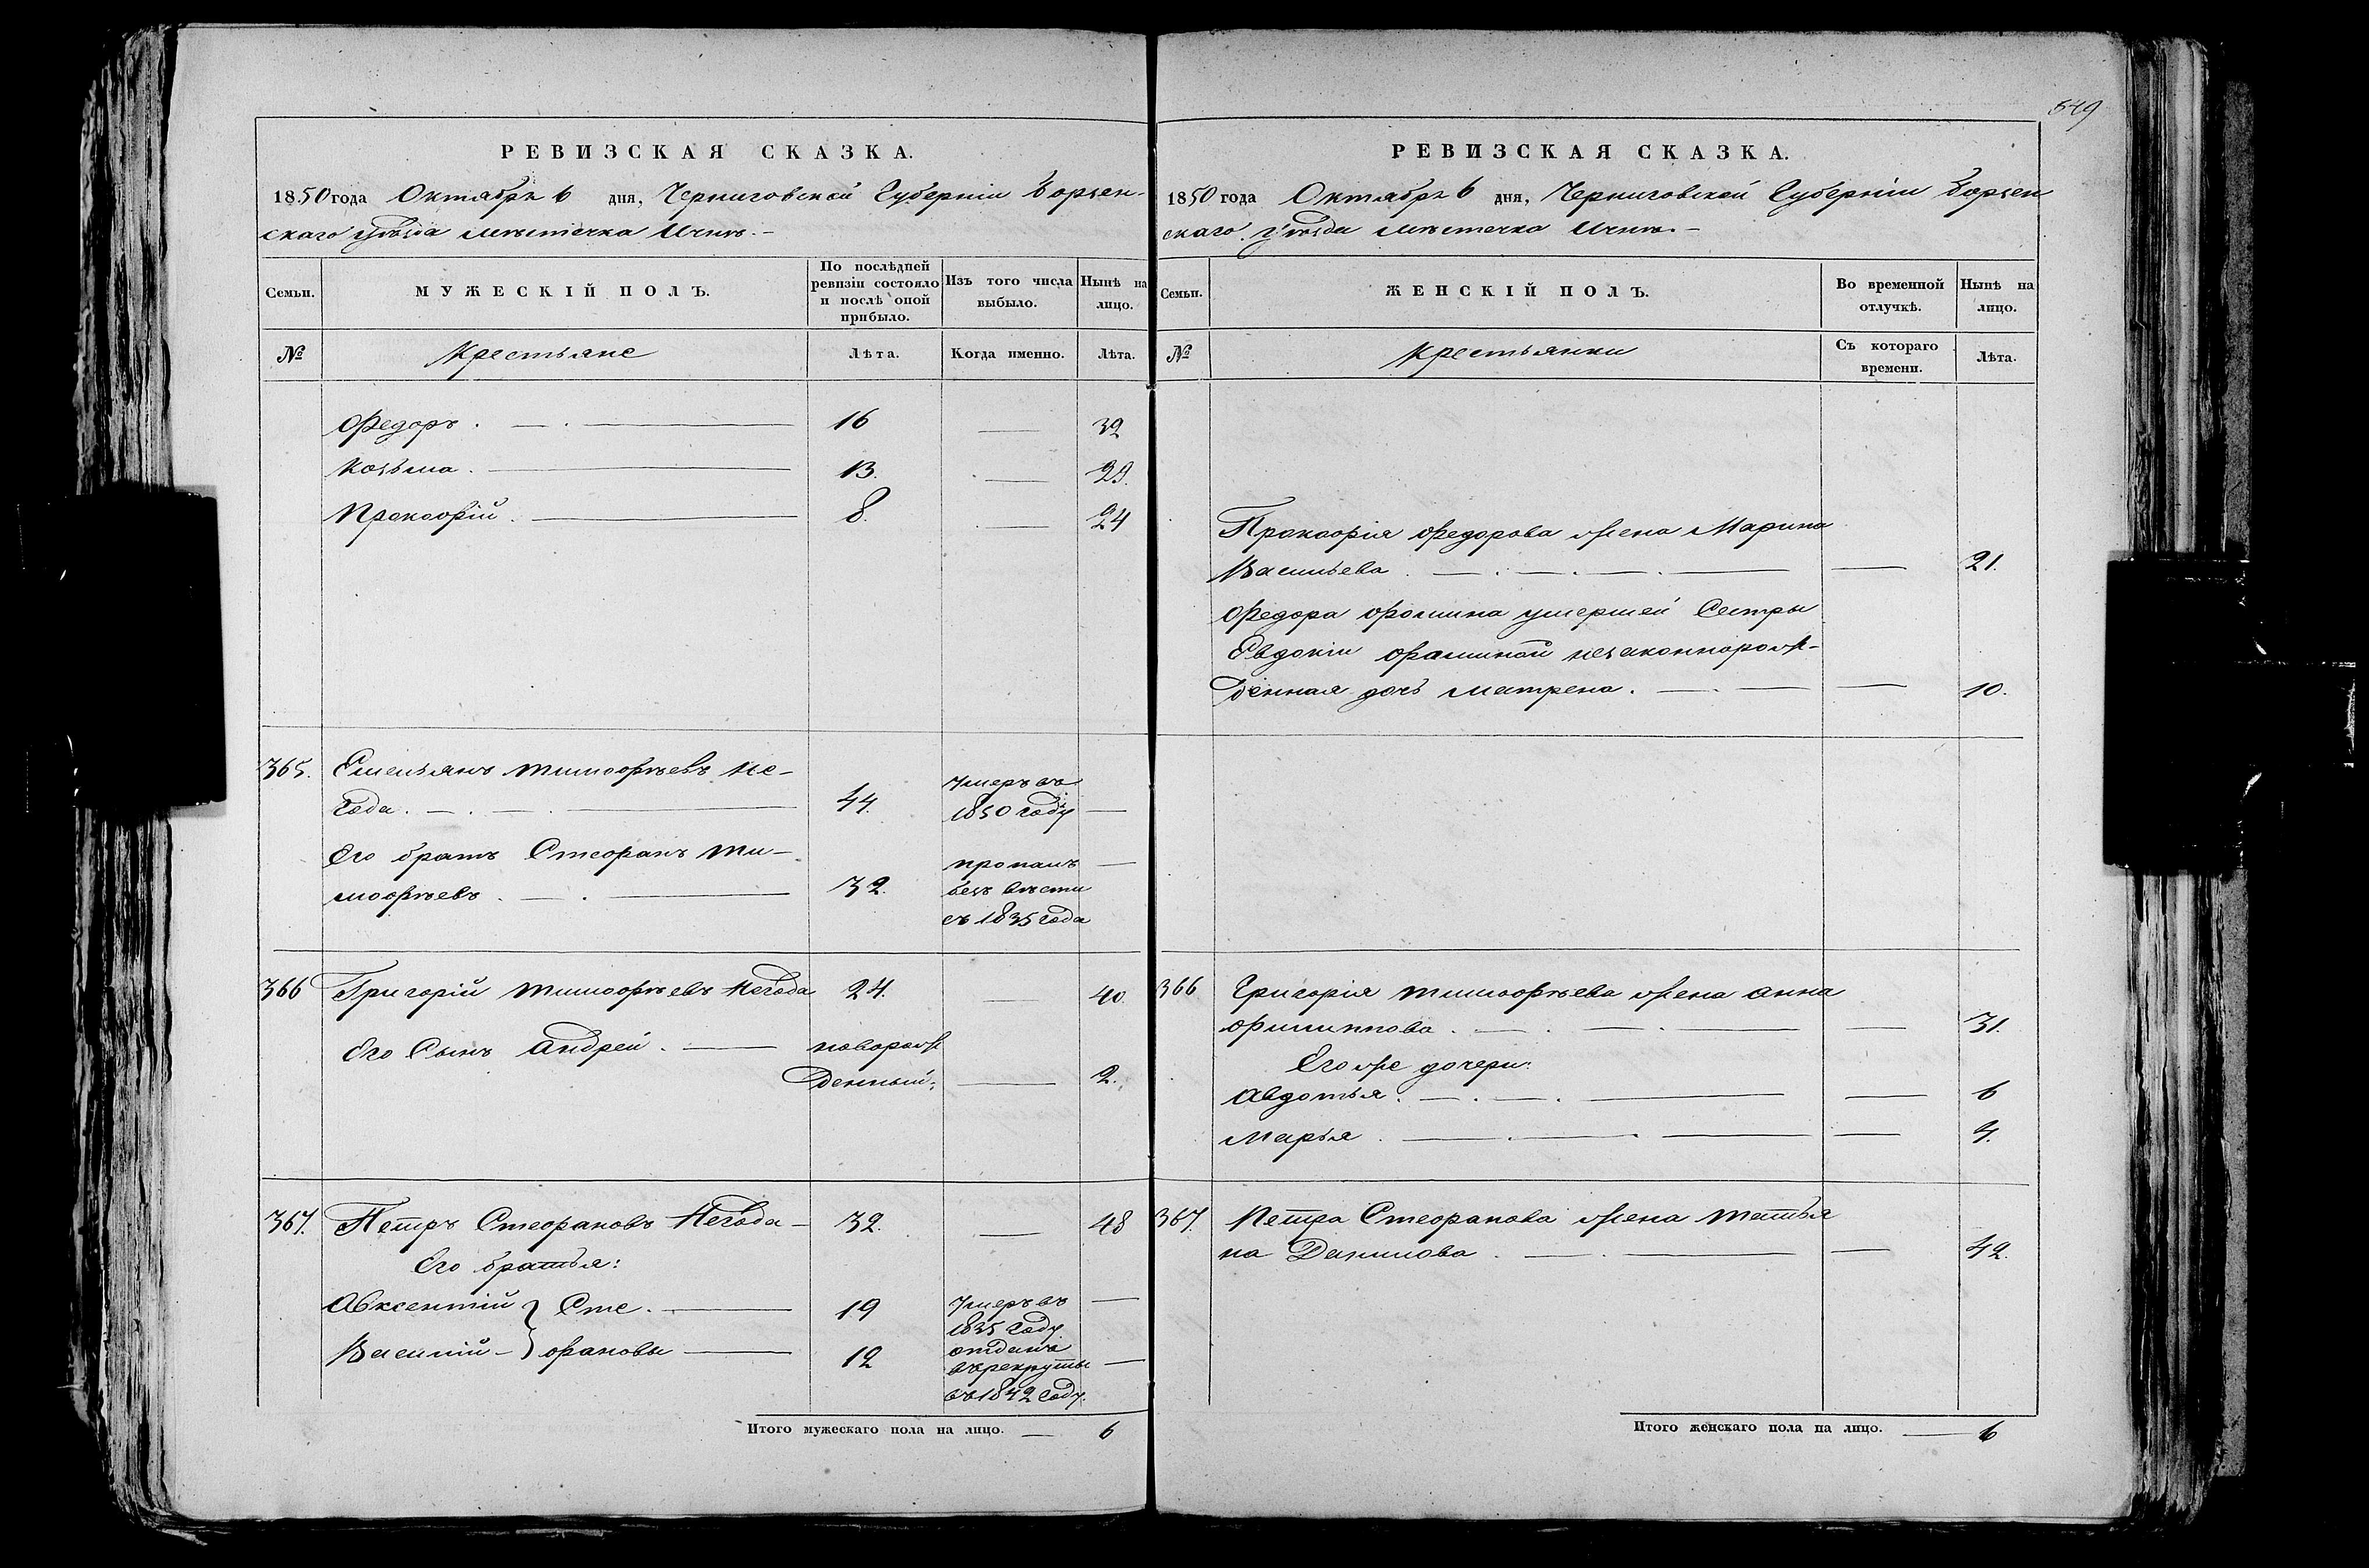 РЕВИЗСКАЯ СКАЗКА.
1850 года Октября 6 дня, Черниговской Губерніи Борзен-
скаго уѣзда мѣстечка Ични.-
Семьи. МУЖЕСКІЙ ПОЛЪ. По послѣдней ревизіи состояло и послѣ оной прибыло. Изъ того числа выбыло. Нынѣ на лицо.
№ Крестьяне Лѣта. Когда именно. Лѣта.
Федоръ. 16 — 32
Козьма. 13. — 29.
Прокофій. 8. — 24
365. Емельянъ Тимофѣевъ Не-
года. 44. Умеръ въ 1850 году —
Его братъ Стефанъ Ти-
мофѣевъ. 32. пропалъ без вѣсти съ 1835 года —
366 Григорій Тимофѣевъ Негода 24. — 40.
Его Сынъ Андрей. новорож
денный. — 2.
367. Петръ Стефановъ Негода — 32. — 48
Его братья:
Авксентій } Сте. 19 Умеръ въ 1835 году —
Василій — } фановы 12 отданъ въ рекруты въ 1842 году. —
Итого мужескаго пола на лицо. — 6
649
РЕВИЗСКАЯ СКАЗКА.
1850 года Октября 6 дня, Черниговской Губерніи Борзен
скаго уѣзда мѣстечка Ични.-
Семьи. ЖЕНСКІЙ ПОЛЪ. Во временной отлучкѣ. Нынѣ на лицо.
№ Крестьянки Съ котораго времени. Лѣта.
Прокофія Федорова жена Марина
Васильева. — 21.
Федора Фомина умершей Сестры
Евдокіи Фоминой незаконнорож-
денная дочь Матрена. — 10.
366 Григорія Тимофѣева жена Анна
Филиппова. — 31.
Его же дочери:
Авдотья. — 6
Марья. — 4.
367. Петра Стефанова жена Татья
на Данилова. — 42.
Итого женскаго пола на лицо. — 6